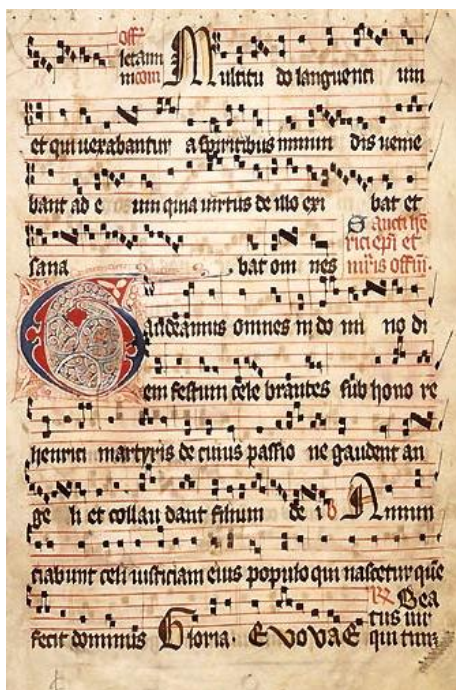 letam
Multitu do languenti um
et qui uexabantur a spiritibus inmun dis uenie
bant ad e um quia uirtus de illo exi bat et
sana bat om nes
Sancti hē
rici epi et
mr̄is offm̄.
Gaudeamus omnes in do mi no di
em festum cele brantes sub hono re
henrici martyris de cuius passio ne gaudent an
ge li et collau dant filium de i
Annun
ciabunt celi iusticiam eius populo qui nascetur quē
fecit dominus Gloria. EVOVAE
Bea
tus uir
qui tim